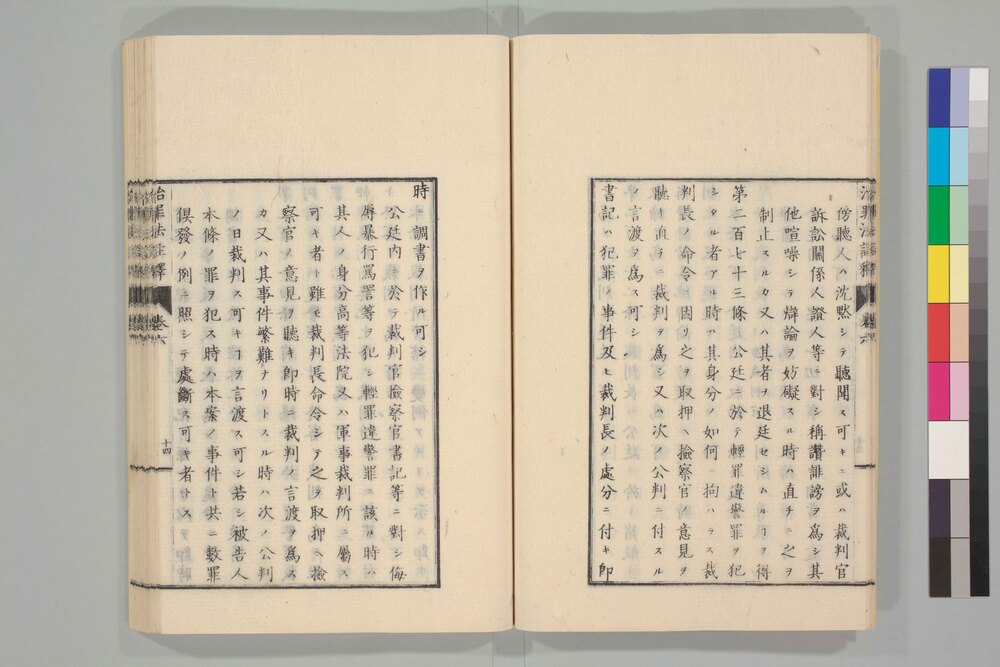 傍聽人ハ沈黙シテ聽聞ス可キニ或ハ裁判官
訴訟關係人證人等ニ對シ稱讚誹謗ヲ爲シ其
他喧噪シテ辯論ヲ妨礙スル時ハ直チニ之ヲ
制止スルカ又ハ其者ヲ退廷セシムルヿヲ得
第二百七十三條公廷ニ於テ輕罪違警罪ヲ犯
シタル者アル時ハ其身分ノ如何ニ拘ハラス裁
判長ノ命令ニ因リ之ヲ取押ヘ檢察官ノ意見ヲ
聽キ直チニ裁判ヲ爲シ又ハ次ノ公判ニ付スル
ノ言渡ヲ爲ス可シ
書記ハ犯罪ノ事件及ヒ裁判長ノ處分ニ付キ即
時ニ調書ヲ作ル可シ
公廷内ニ於テ裁判官檢察官書記等ニ對シ侮
辱暴行罵詈等ヲ犯シ輕罪違警罪ニ該ル時ハ
其人ノ身分高等法院又ハ軍事裁判所ニ屬ス
可キ者ト雖モ裁判長命令シテ之ヲ取押ヘ檢
察官ノ意見ヲ聽キ即時ニ裁判ノ言渡ヲ爲ス
カ又ハ其事件繁難ナリトスル時ハ次ノ公判
ノ日裁判ス可キヿヲ言渡ス可シ若シ被告人
本條ノ罪ヲ犯ス時ハ本案ノ事件ト共ニ數罪
俱發ノ例ニ照シテ處斷ス可キ者トス
治罪法註釋
卷六
十四